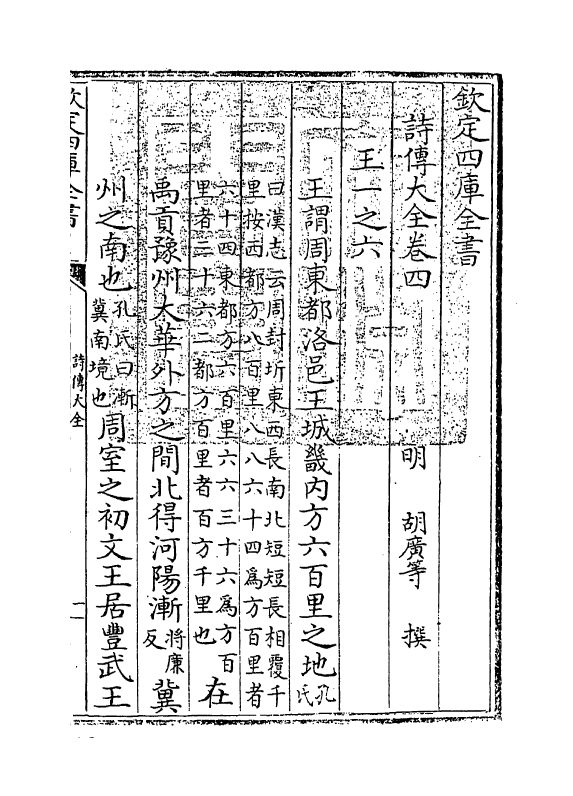 欽定四庫全書
詩傳大全卷四　明　胡廣等　撰
王一之六
王謂周東都洛邑王城畿内方六百里之地孔氏
曰漢志云周封圻東西長南北短短長相覆千
里按西都方八百里八八六十四為方百里者
六十四東都方六百里六六三十六為方百
里者三十六二都方百里者百方千里也
在
禹貢豫州太華外方之間北得河陽漸將廉反冀
州之南也孔氏曰漸冀南境也周室之初文王居豐武王
欽定四庫全書
詩傳大全